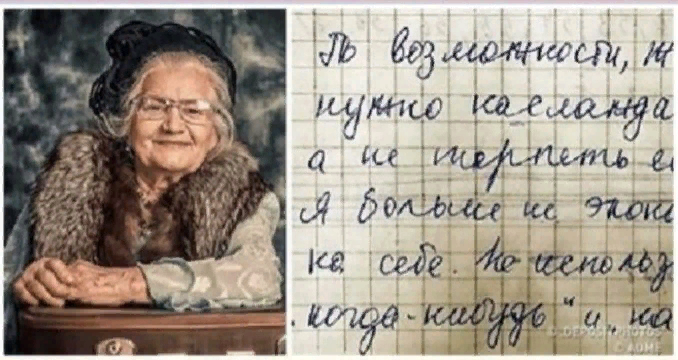 По возможности, ж
нужно наслажда
а не терпеть е
Я больше не эконо
на себе. Не использ
"когда-нибудь" и "на
© DEPOSITPHOTOS
© ADME